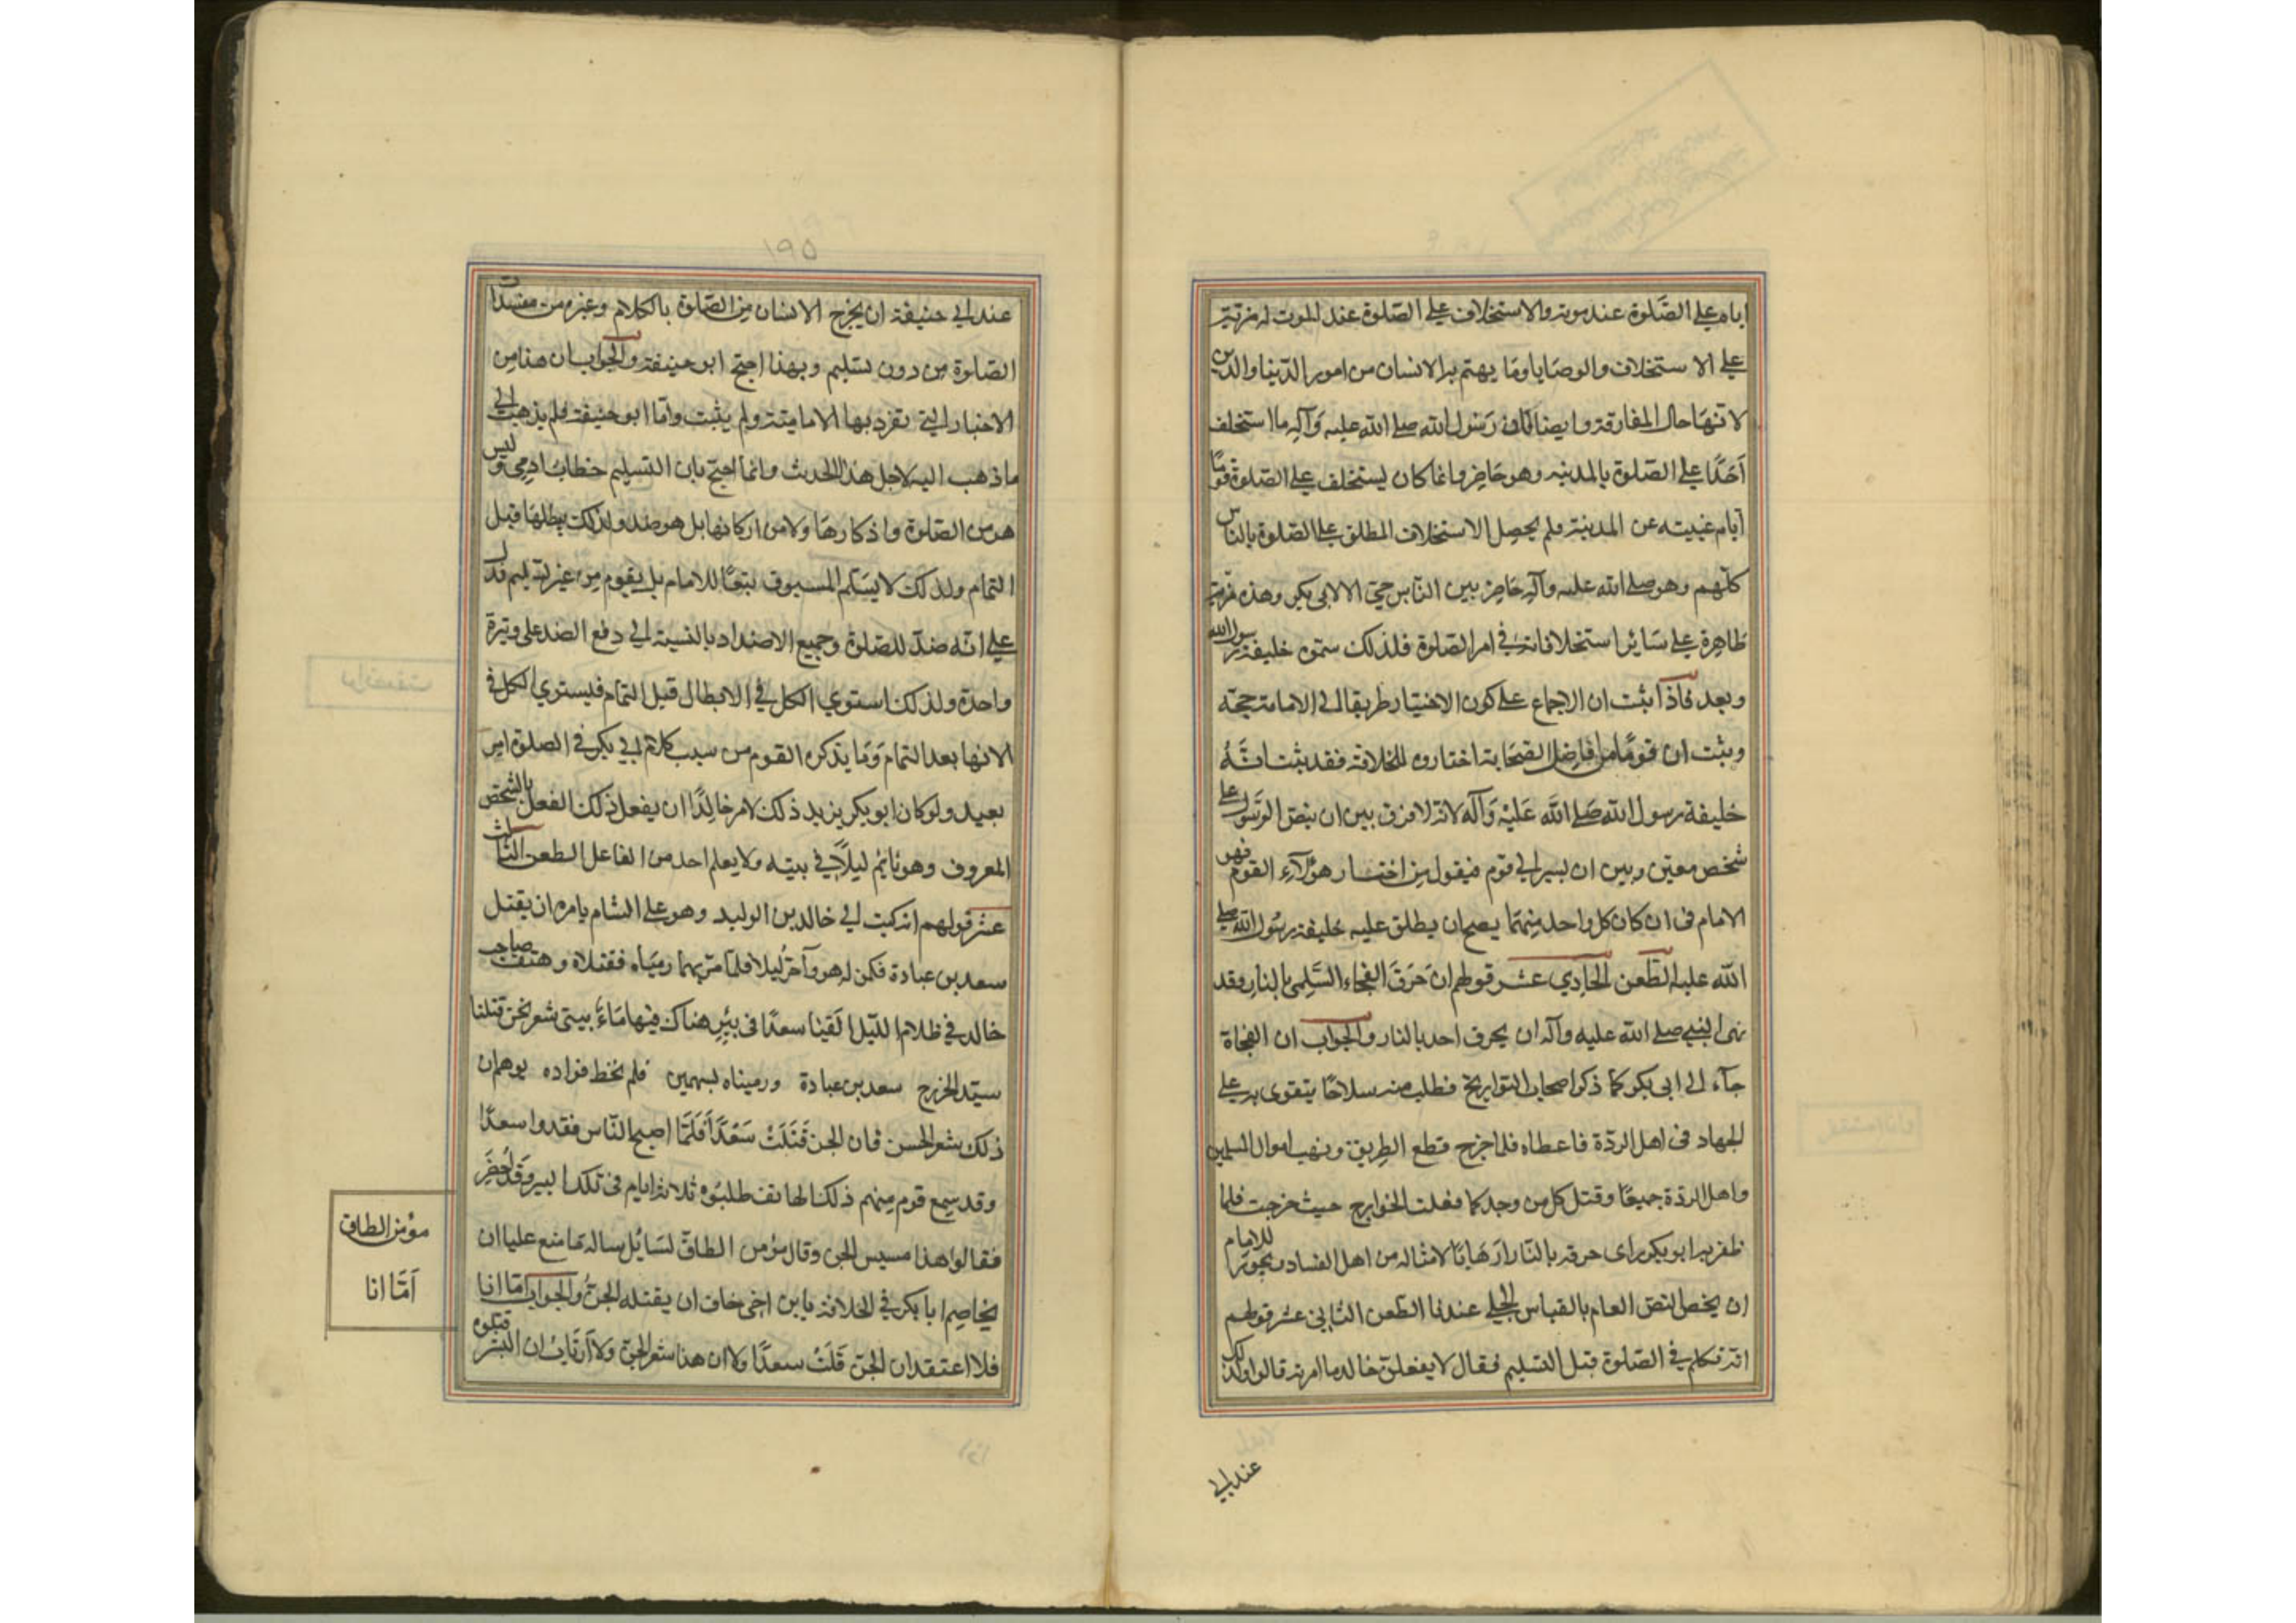 اياه على الصّلوة عند موته والاستخلاف على الصّلوة عند الموت له مزيّة
على الاستخلاف والوصايا وما يهتم به الانسان من امور الدّنيا والدّين
لانّها حال المفارقة وايضا فان رسول الله صلى الله عليه وآله ما استخلف
أحدًا على الصّلوة بالمدينه وهو حاضر وانما كان يستخلف على الصّلوة قومًا
أيام غيبته عن المدينة فلم يحصل الاستخلاف المطلق على الصّلوة بالناس
كلّهم وهو صلى الله عليه وآله حاضر بين النّاس حيّ الا لابي بكر وهذه مزيّة
ظاهرة على سائر استخلافاته في امر الصّلوة فلذلك سمّوه خليفة رسول الله
وبعد فاذا ثبت ان الاجماع على كون الاختيار طريقا الى الامامة حجّة
وثبت ان قومًا من افاضل الصّحابة اختاروه للخلافة فقد ثبت انّه
خليفة رسول الله صلى الله عليه وآله لانّه لا فرق بين ان ينصّ الرّسول على
شخص معيّن وبين ان يشير الى قوم فيقول من اختار هؤلاء القوم فهو
الامام في ان كان كل واحد منهما يصحان يطلق عليه خليفة رسول الله صلى
الله عليه الطّعن الحادي عشر قولهم ان حَرَقَ الفجاء السّلمي بالنار وقد
نهى النبي صلى الله عليه وآله ان يحرق احد بالنار والجواب ان الفجاة
جآء الى ابي بكر كما ذكر اصحاب التواريخ فطلب منه سلاحًا يتقوى به على
الجهاد في اهل الردّة فاعطاه فلما خرج قطع الطريق ونهب اموال المسلمين
واهل الردّة جميعًا وقتل كل من وجد كما فعلت الخوارج حيث خرجت فلما
ظفر به ابو بكر راى حرقه بالنّار ارهابًا لامثاله من اهل الفساد ويجوز للامام
ان يخص النصّ العام بالقياس الجلي عندنا الطّعن الثاني عشر قولهم
انّه تكلم في الصّلوة قبل التسليم فقال لا يفعلنّ خالد ما امرته قالوا ولذلك
عند ابي
١٩٥
عند ابي حنيفة ان يخرج الانسان من الصّلوة بالكلام وغيره من مفسدات
الصّلوة من دون تسليم وبهذا احتج ابو حنيفة والجواب ان هذا من
الاخبار التي تفرد بها الاماميّة ولم يثبت وأمّا ابو حنيفة فلم يذهب الى
ما ذهب اليه لاجل هذا الحديث وانما احتج بان التسليم خطاب ادمي وليس
هو من الصّلوة واذكارها ولا من اركانها بل هو ضد ولذلك يبطلها قبل
التمام ولذلك لا يسلّم المسبوق تبعًا للامام بل يقوم من غير تسليم فدلّ
على انّه ضدّ للصّلوة وجميع الاضداد بالنسبة الى دفع الضد على وتيرة
واحدة ولذلك استوي الكل في الابطال قبل التمام فيستوي الكل في
الانها بعد التمام وَمَا يذكره القوم من سبب كلام ابي بكر في الصلوة امر
بعيد ولو كان ابو بكر يريد ذلك لامر خالدًا ان يفعل ذلك الفعل بالشخص
المعروف وهو نائم ليلاً في بيته ولا يعلم احد من الفاعل الطعن الثالث
عشر قولهم انه كتب الى خالد بن الوليد وهو على الشام يامره ان يقتل
سعد بن عبادة فكمن له هو وآخر ليلا فلمّا مرّ بهما رمياه فقتلاه وهتف صاحب
خالد في ظلام اللّيل القينا سعدًا في بئر هناك فيها مَاءَ بيتي شعر نحن قتلنا
سيّد الخزرج سعد بن عبادة ورميناه بسهمين فلم نخط فؤاده يوهم ان
ذلك شعر الجن فان الجن قتلت سعدًا فلمّا اصبح النّاس فقدوا سعدًا
وقد سمع قوم منهم ذلك الهاتف فطلبوه ثلاثة ايام في تلك البير وقد اخضر
فقالوا هذا مسيس الجن وقال مؤمن الطاق لسائل ساله ما منع عليا ان
يخاصم ابا بكر في الخلافة يابن اخي خاف ان يقتله الجنّ والجواب امّا انا
فلا اعتقد ان الجن قتلت سعدًا ولا ان هذا شعر الجن ولا أرتاب ان البشر قتلوه
مؤمن الطاق
أمّا انا